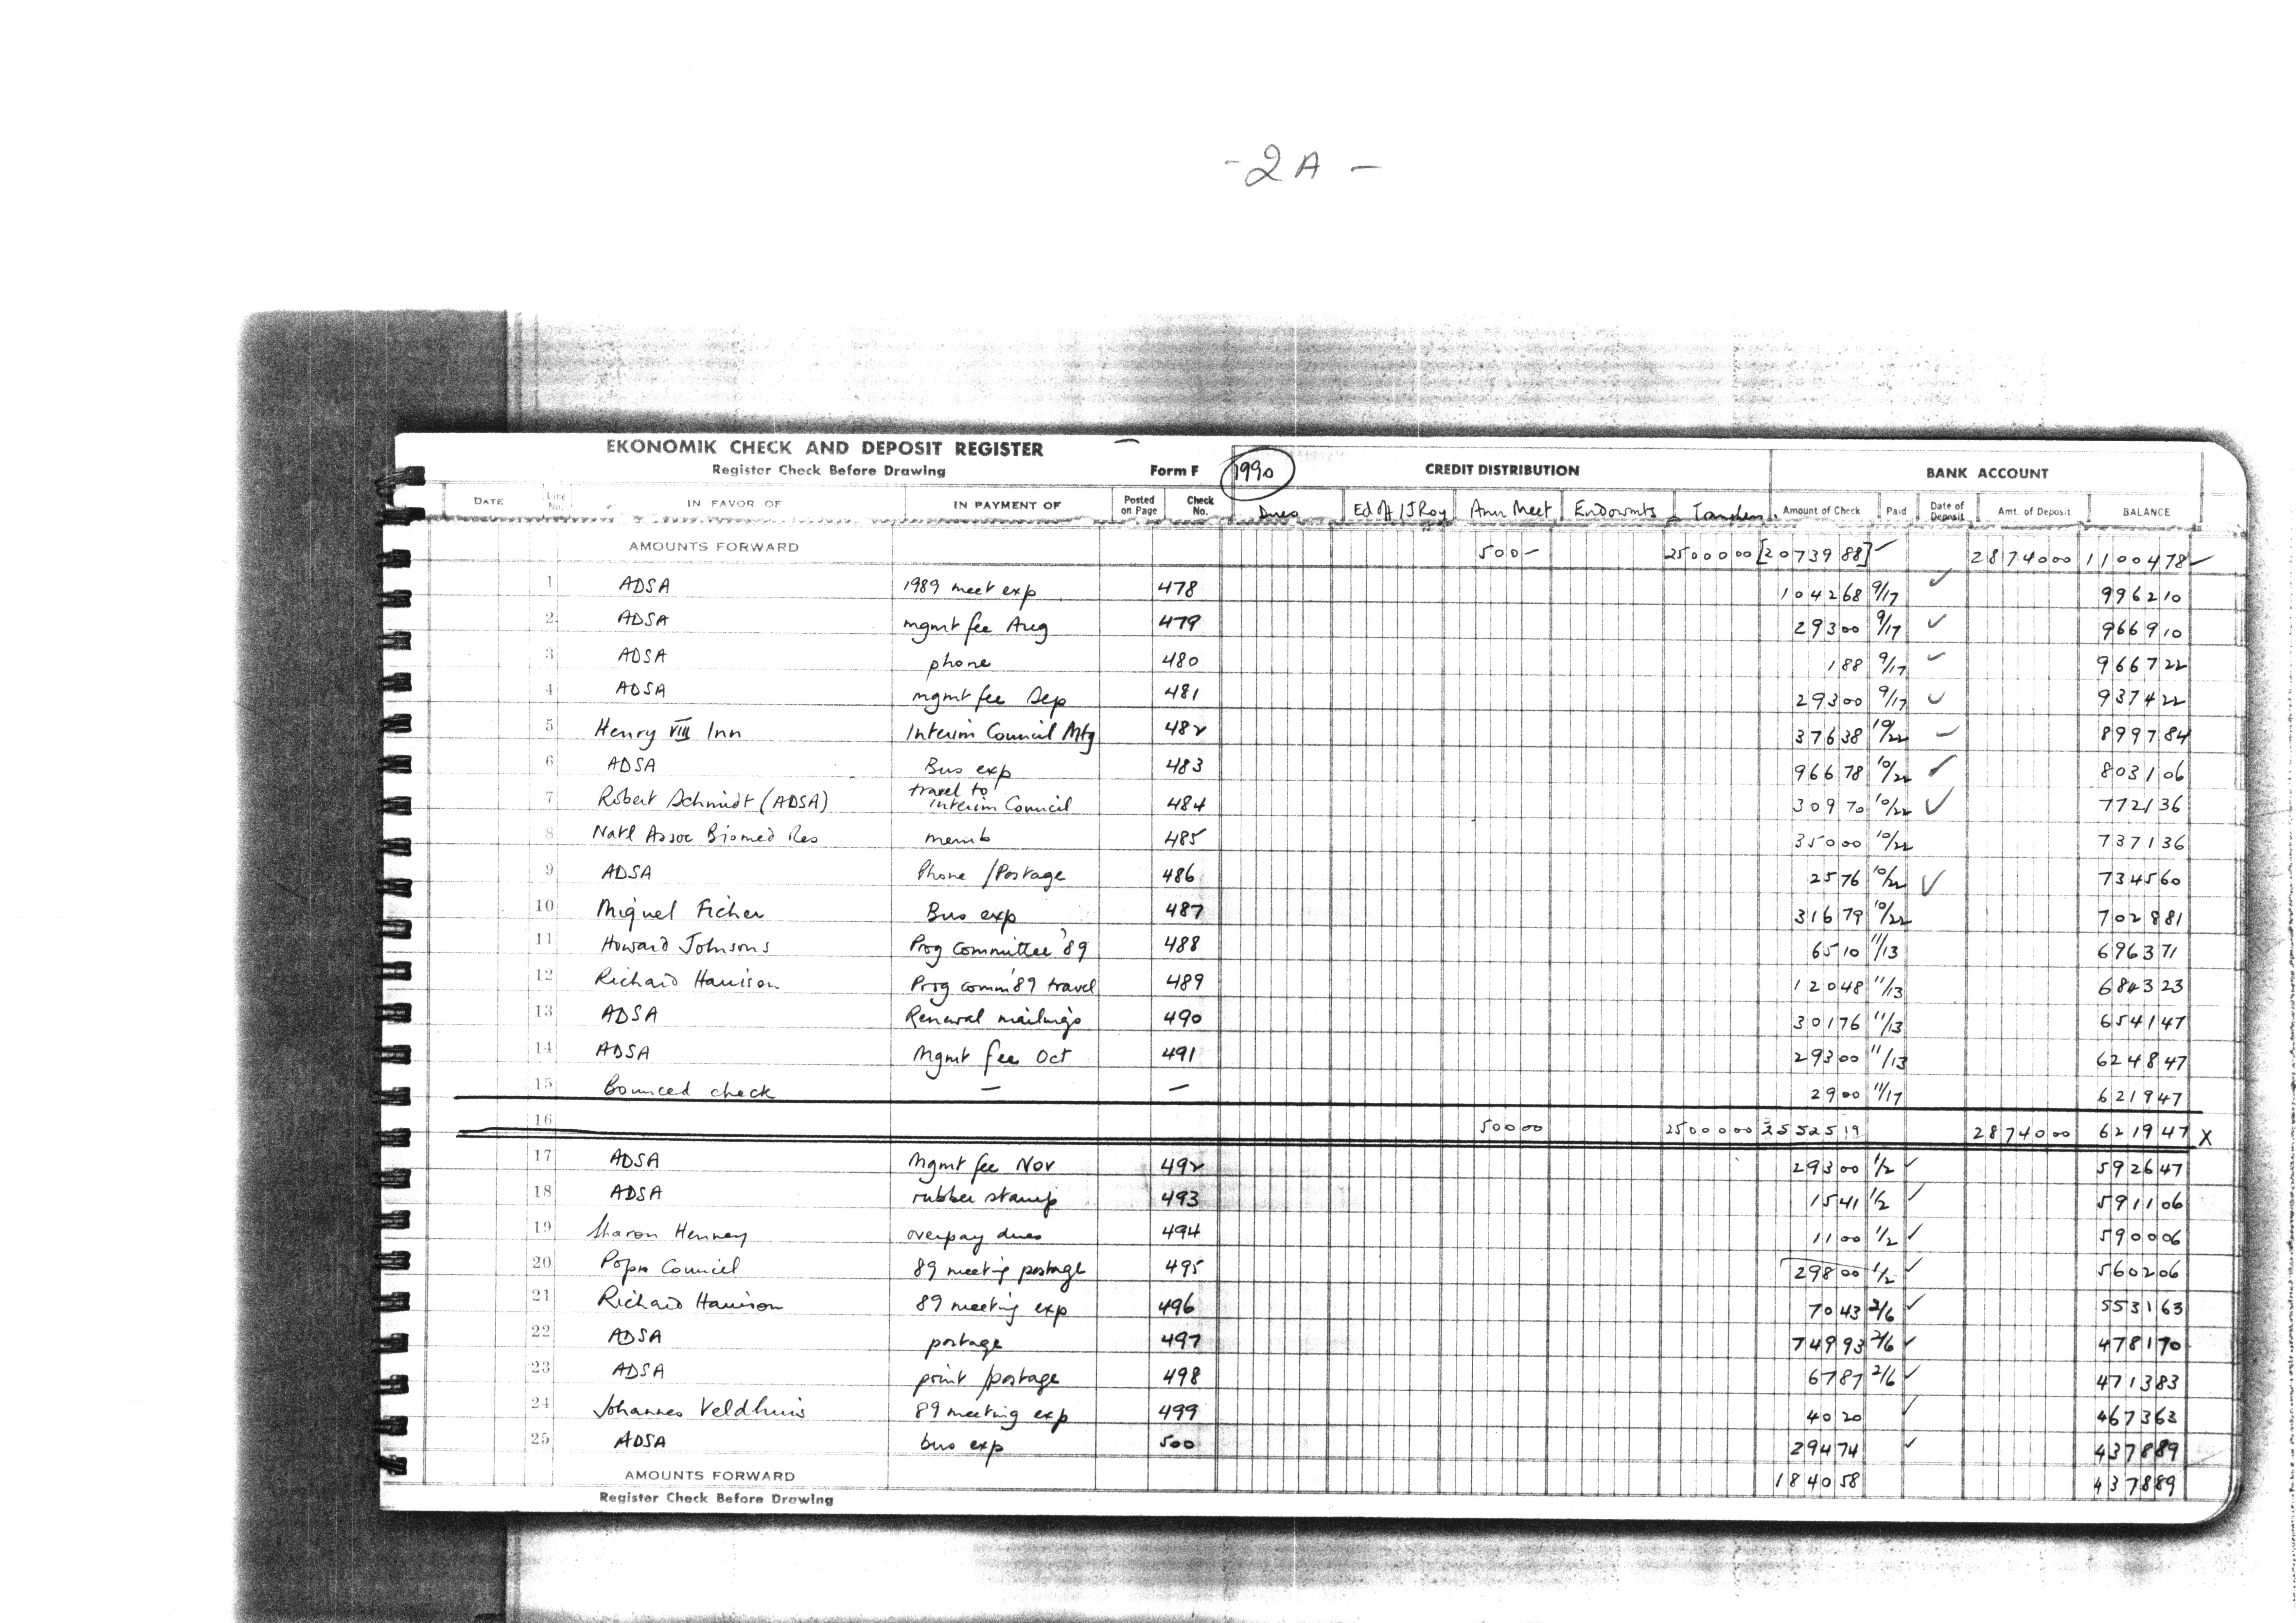 - 2 A -
EKONOMIK CHECK AND DEPOSIT REGISTER
Register Check Before Drawing Form F 1990 CREDIT DISTRIBUTION BANK ACCOUNT
DATE Line No. IN FAVOR OF IN PAYMENT OF Posted on Page Check No. Dues Ed Off / J Roy Ann Meet Endowmts Amount of Check Paid Date of Deposit Amt. of Deposit BALANCE
AMOUNTS FORWARD 500- 2500000 [2073988] ✓ 2874000 1100478 ✓
1 ADSA 1989 meet exp 478 104268 9/17 ✓ 996210
2 ADSA mgmt fee Aug 479 29300 9/17 ✓ 966910
3 ADSA phone 480 188 9/17 ✓ 966722
4 ADSA mgmt fee Sep 481 29300 9/17 ✓ 937422
5 Henry VIII Inn Interim Council Mtg 482 37638 10/22 ✓ 899784
6 ADSA Bus exp 483 96678 10/22 ✓ 803106
7 Robert Schmidt (ADSA) travel to Interim Council 484 30970 10/22 ✓ 772136
8 Natl Assoc Biomed Res memb 485 35000 10/22 737136
9 ADSA Phone / Postage 486 2576 10/22 ✓ 734560
10 Miguel Ficher Bus exp 487 31679 10/22 702881
11 Howard Johnsons Prog Committee '89 488 6510 11/13 696371
12 Richard Harrison Prog comm '89 travel 489 12048 11/13 684323
13 ADSA Renewal mailings 490 30176 11/13 654147
14 ADSA Mgmt fee Oct 491 29300 11/13 624847
15 Bounced check — — 2900 11/17 621947
16 50000 2500000 2552519 2874000 621947 X
17 ADSA Mgmt fee Nov 492 29300 1/2 ✓ 592647
18 ADSA rubber stamp 493 1541 1/2 ✓ 591106
19 Sharon Henney overpay dues 494 1100 1/2 ✓ 590006
20 Council 89 meeting postage 495 29800 1/2 ✓ 560206
21 Richard Harrison 89 meeting exp 496 7043 2/6 ✓ 553163
22 ADSA postage 497 74993 2/6 ✓ 478170
23 ADSA print / postage 498 6787 2/6 ✓ 471383
24 Johannes Veldhuis 89 meeting exp 499 4020 ✓ 467363
25 ADSA bus exp 500 29474 ✓ 437889
AMOUNTS FORWARD 184058 437889
Register Check Before Drawing